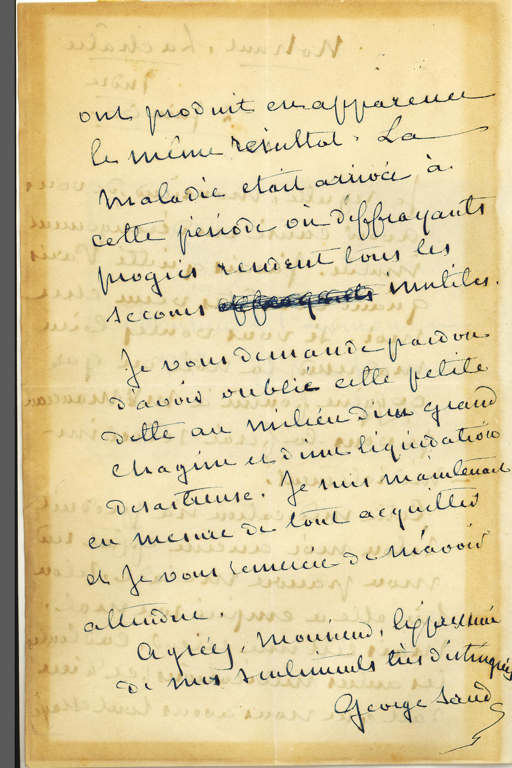 ont produit en apparence
le même résultat. La
maladie était arrivée à
cette période où d'effrayants
progrès rendent tous les
secours effrayants inutiles.
Je vous demande pardon
d'avoir oublié cette petite
dette au milieu d'un grand
chagrin et d'une liquidation
desastreuse. Je suis maintenant
en mesure de tout acquitter
et je vous remercie de m'avoir
attendue.
Agréez, monsieur, l'expression
de mes sentiments très distingués
George Sand